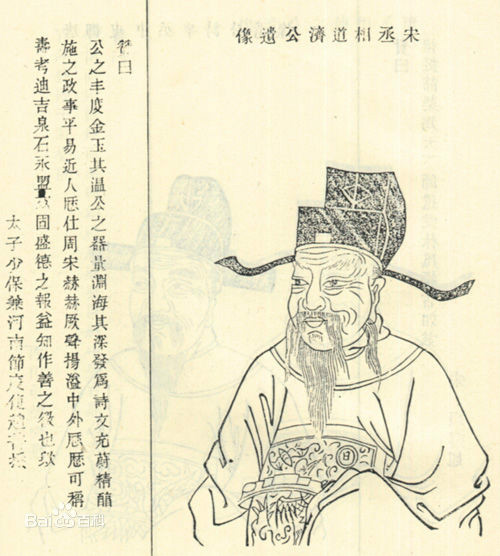 宋丞相道濟公遺像
贊曰
公之丰度金玉其温公之器量淵海其深發爲詩文充蔚精醇
施之政事平易近人歷仕周宋赫赫厥尊揚溢中外歷歷可稱
壽考迪吉泉石永盟固盛德之報益知作善之徵也歟
太子少保兼河南節度使趙普
Bai百科